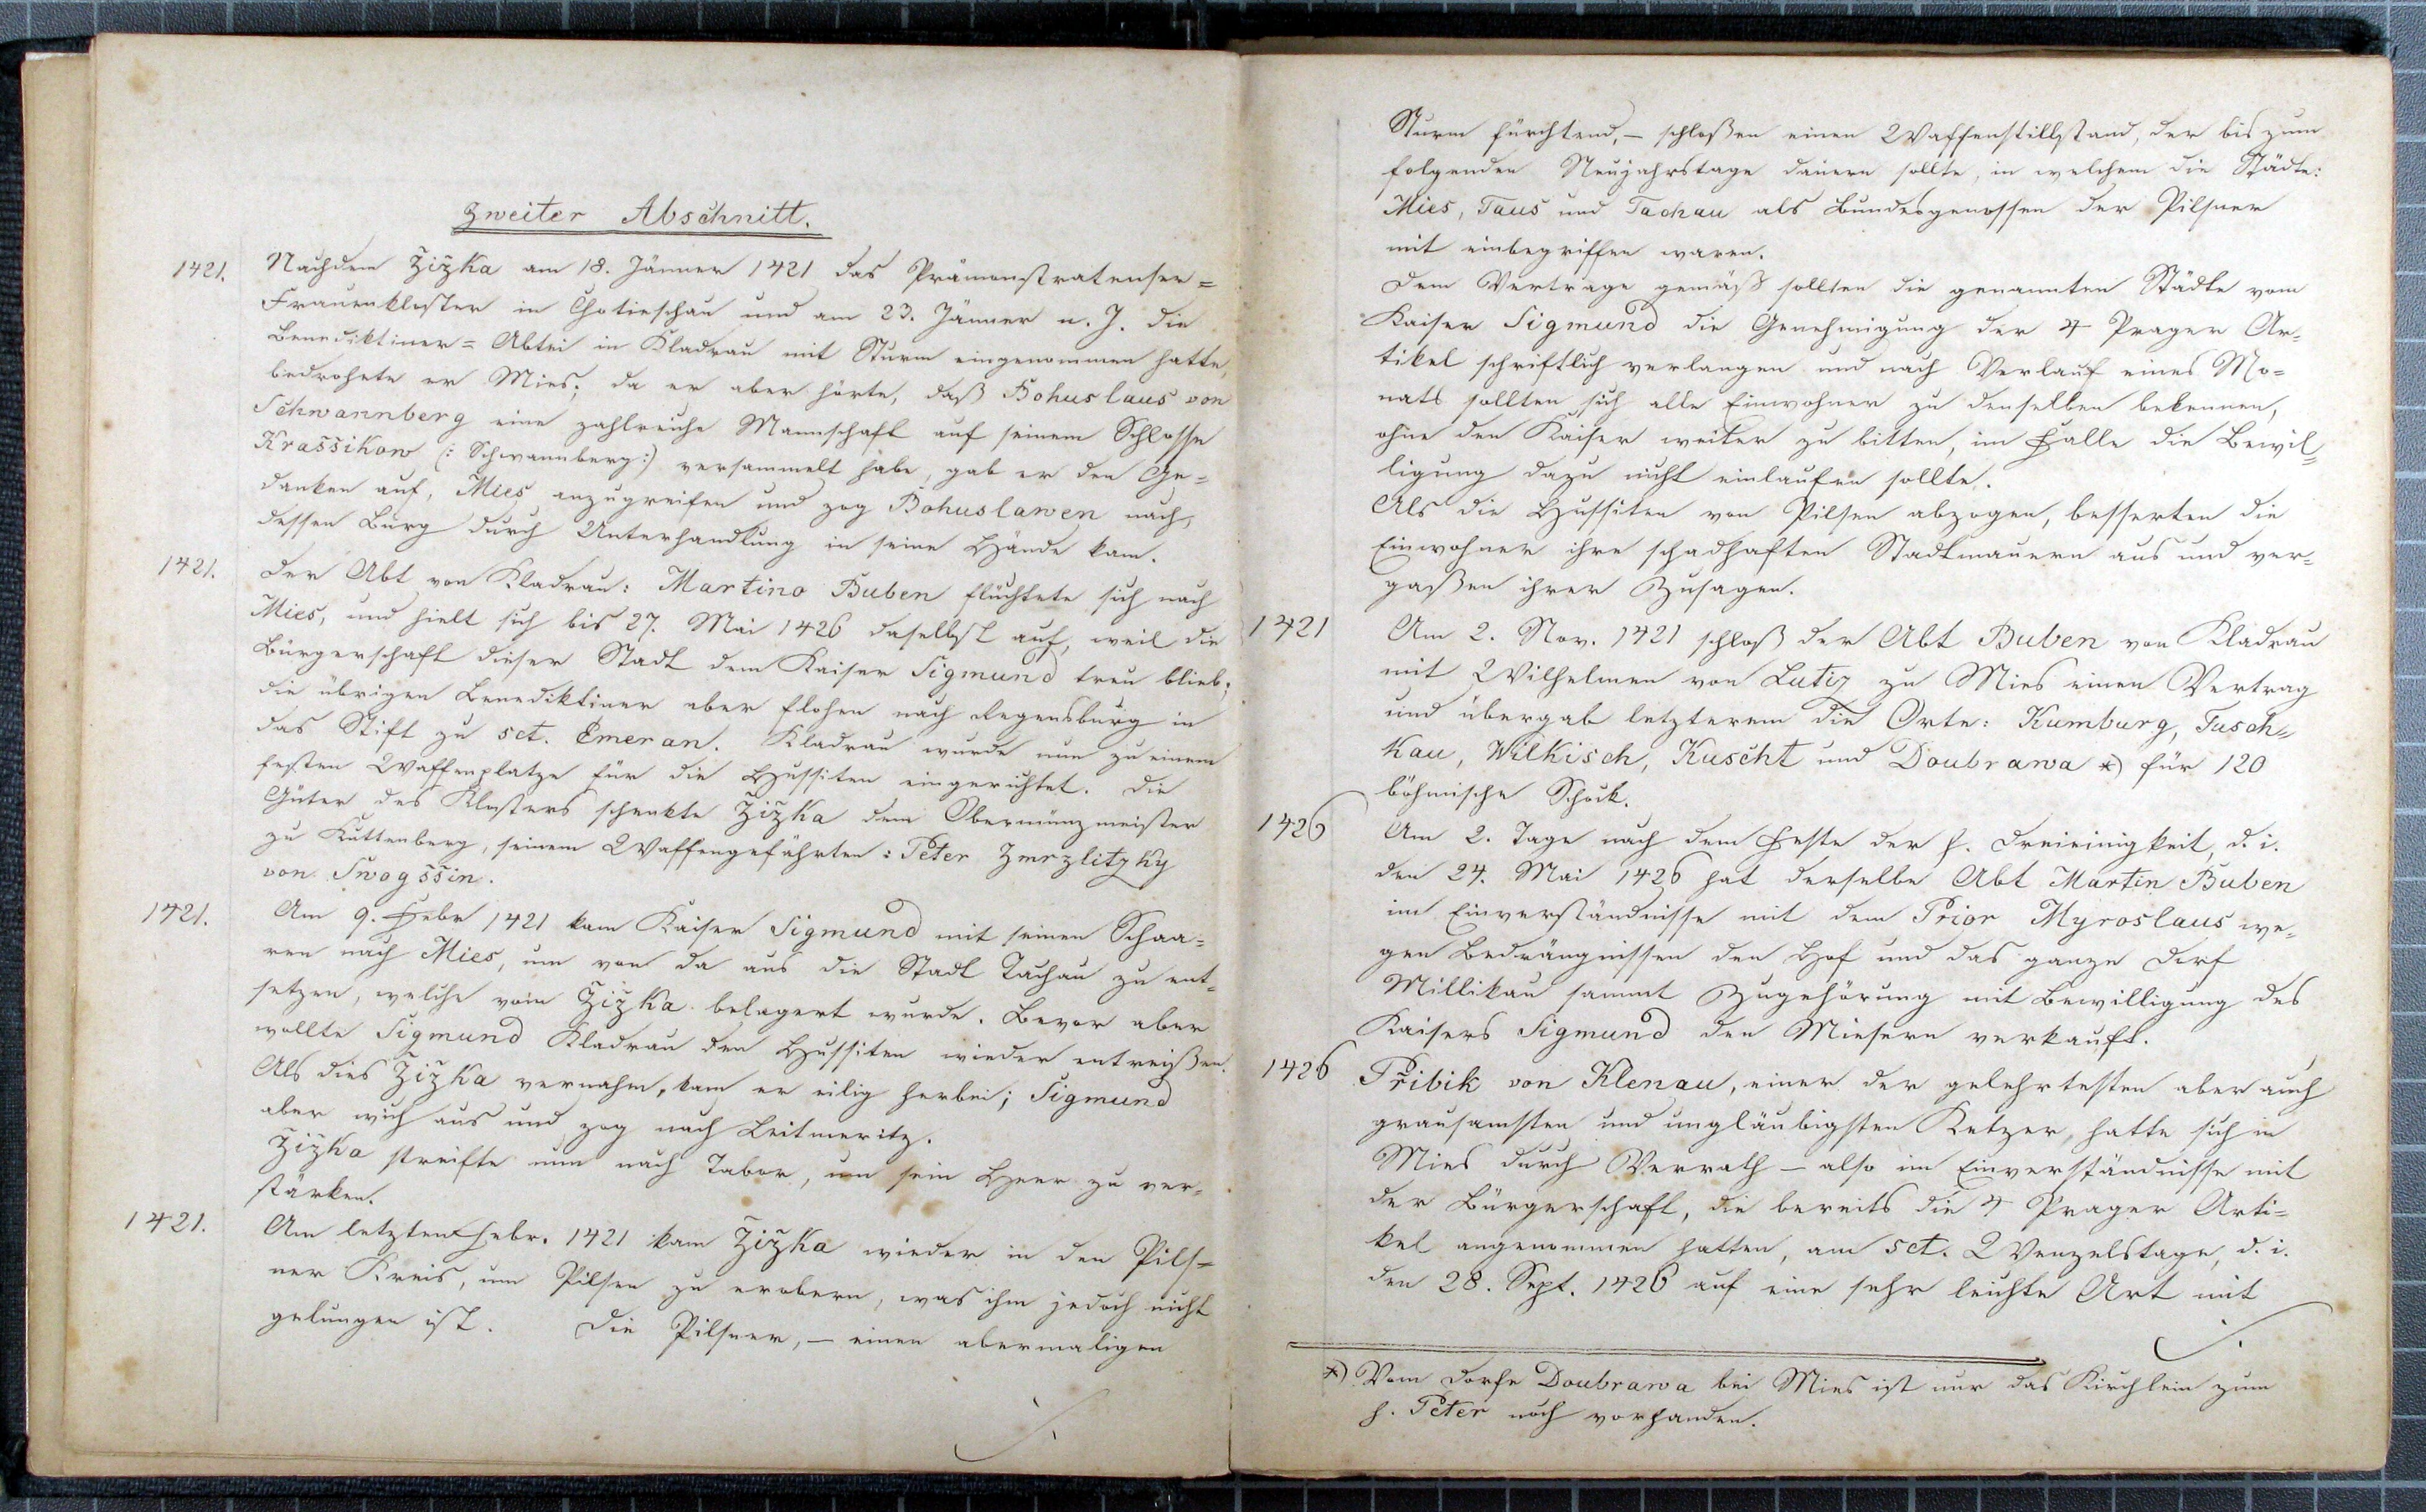 Zweiter Abschnitt.
1421. Nachdem Žižka am 18. Jänner 1421 das Prämonstratenser=
Frauenkloster in Chotieschau und am 23. Jänner n. J. die
Benediktiner=Abtei in Kladrau mit Sturm eingenommen hatte,
bedrohete er Mies; da er aber hörte, daß Bohuslaus von
Schwannberg eine zahlreiche Mannschaft auf seinem Schlosse
Krassikow (: Schwannberg :) versammelt habe, gab er den Ge=
danken auf, Mies anzugreifen und zog Bohuslawen nach,
dessen Burg durch Unterhandlung in seine Hände kam.
1421. Der Abt von Kladrau: Martino Buben flüchtete sich nach
Mies, und hielt sich bis 27. Mai 1426 daselbst auf, weil die
Bürgerschaft dieser Stadt dem Kaiser Sigmund treu blieb;
die übrigen Benediktiner aber flohen nach Regensburg in
das Stift zu sct. Emeran. Kladrau wurde nun zu einem
festen Waffenplatze für die Hussiten eingerichtet. Die
Güter des Klosters schenkte Žižka dem Obermünzmeister
zu Kuttenberg, seinem Waffengefährten: Peter Zmrzlitzky
von Swogssin.
1421. Am 9. Febr 1421 kam Kaiser Sigmund mit seinen Schaa=
ren nach Mies, um von da aus die Stadt Tachau zu ent=
setzen, welche vom Žižka belagert wurde. Bevor aber
wollte Sigmund Kladrau den Hussiten wieder entreißen.
Als dies Žižka vernahm, kam er eilig herbei; Sigmund
aber wich aus und zog nach Leitmeritz.
Žižka streifte nun nach Tabor, um sein Heer zu ver=
stärken.
1421. Am letzten Febr. 1421 kam Žižka wieder in den Pils=
ner Kreis, um Pilsen zu erobern, was ihm jedoch nicht
gelungen ist. Die Pilsner, – einen abermaligen
./.
Sturm fürchtend, – schloßen einen Waffenstillstand, der bis zum
folgenden Neujahrstage dauern sollte, in welchem die Städte:
Mies, Taus und Tachau als Bundesgenossen der Pilsner
mit einbegriffen waren.
Dem Vertrage gemäß sollten die genannten Städte vom
Kaiser Sigmund die Genehmigung der 4 Prager Ar=
tikel schriftlich verlangen und nach Verlauf eines Mo=
nats sollten sich alle Einwohner zu denselben bekennen,
ohne den Kaiser weiter zu bitten, im Falle die Bewil=
ligung dazu nicht einlaufen sollte.
Als die Hussiten von Pilsen abzogen, besserten die
Einwohner ihre schadhaften Stadtmauern aus und ver=
gaßen ihrer Zusagen.
1421 Am 2. Nov. 1421 schloß der Abt Buben von Kladrau
mit Wilhelmen von Lutiz zu Mies einen Vertrag
und übergab letzterem die Orte: Kumburg, Tusch=
kau, Wilkisch, Kuscht und Doubrawa *) für 120
böhmische Schock.
1426 Am 2. Tage nach dem Feste der h. Dreieinigkeit, d. i.
den 24. Mai 1426 hat derselbe Abt Martin Buben
im Einverständnisse mit dem Prior Myroslaus we=
gen Bedrängnissen den Hof und das ganze Dorf
Millikau sammt Zugehörung mit Bewilligung des
Kaisers Sigmund den Miesern verkauft.
1426 Přibik von Klenau, einer der gelehrtesten aber auch
grausamsten und ungläubigsten Ketzer, hatte sich in
Mies durch Verrath – also im Einverständnisse mit
der Bürgerschaft, die bereits die 4 Prager Arti=
kel angenommen hatten, am sct. Wenzelstage, d. i.
den 28. Sept. 1426 auf eine sehr leichte Art mit
./.
*) Vom Dorfe Doubrawa bei Mies ist nur das Kirchlein zum
h. Peter noch vorhanden.